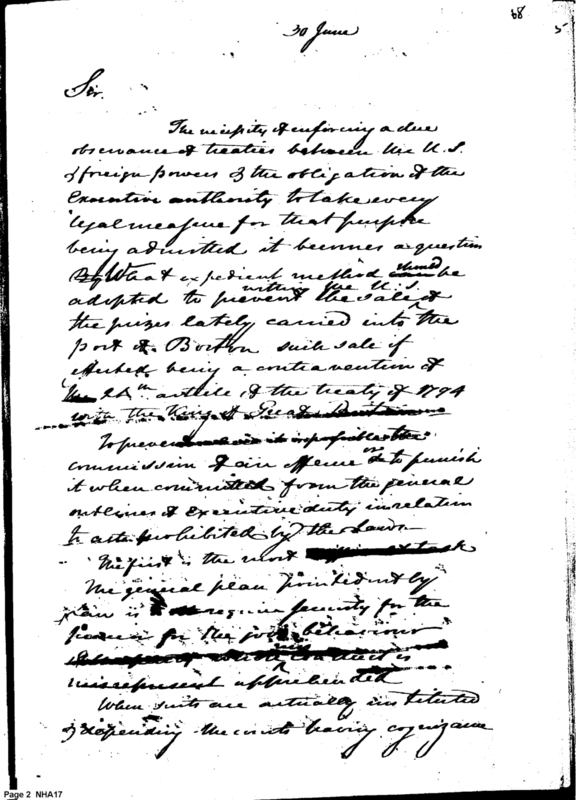 68
5
30 June
Sir.
The necessity of enforcing a due
observance of treaties between the U.S.
& foreign powers & the obligation of the
Executive authority to take every
legal measure for that purpose
being admitted it becomes a question
By What expedient method should be
within the U.S.
adopted to prevent the sale of
the prizes lately carried into the
port of Boston such sale if
effected being a contravention of
the 24th article of the treaty of 1794
with the King of Great Britain
To prevent the
commission of an offence or to punish
it when committed from the general
outlines of executive duty in relation
to acts prohibited by the Laws
The first is the most task
The general plan pointed out by
Law is to require security for the
for the good behaviour
apprehended
When suits are actually instituted
& depending the courts having cognizance
Page 2 NHA17